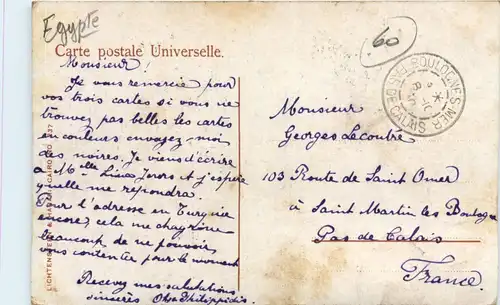 Egypte
60
Carte postale Universelle.
BOULOGNE-S-MER
PAS-DE-CALAIS
Monsieur!
Je vous remercie pour
vos trois cartes si vous ne
trouvez pas belles les cartes
en couleurs envoyez-moi
des noires. Je viens d'écrire
à Mlle Lina et j'espère
qu'elle me répondra.
Pour l'adresse en Turquie
encore, cela me chagrine
beaucoup de ne pouvoir
vous contenter pour le moment
Recevez mes salutations
sincères Olga Philippidis
Monsieur
Georges Lecoutre
103 Route de Saint Omer
à Saint Martin les Boulogne
Pas de Calais
France.
CAIRO